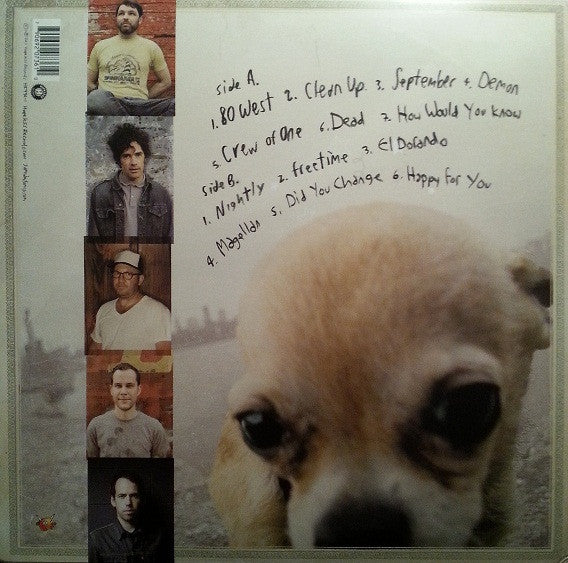 side A.
1. 80 West 2. Clean Up 3. September 4. Demon
5. Crew of One 6. Dead 7. How Would You Know
side B.
1. Nightly 2. freetime 3. El Dorando
4. Magellan 5. Did You Change 6. Happy For You